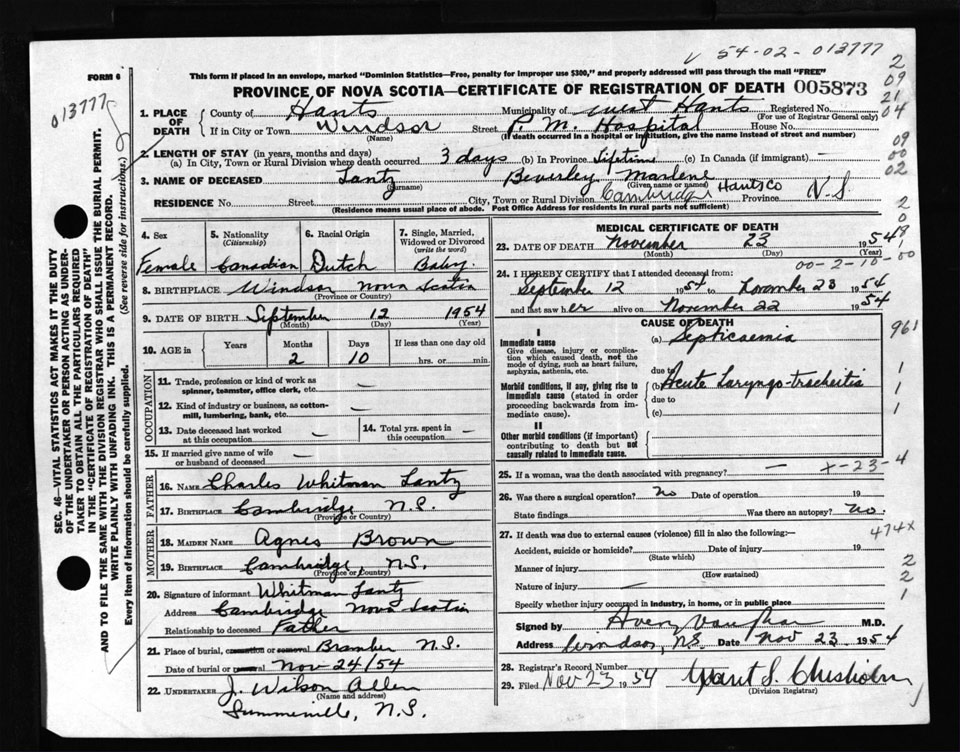 54-02-013777
FORM 6
This form if placed in an envelope, marked "Dominion Statistics—Free, penalty for improper use $300," and properly addressed will pass through the mail "FREE"
013777
PROVINCE OF NOVA SCOTIA—CERTIFICATE OF REGISTRATION OF DEATH 005873
1. PLACE OF DEATH County of Hants Municipality of West Hants Registered No.
(For use of Registrar General only)
If in City or Town Windsor Street P. M. Hospital House No.
(Name) (If death occurred in a hospital or institution, give the name instead of street and number)
2. LENGTH OF STAY (in years, months and days)
(a) In City, Town or Rural Division where death occurred 3 days (b) In Province Lifetime (c) In Canada (if immigrant) —
3. NAME OF DECEASED Lantz Beverley Marlene
(Surname) (Given name or names)
RESIDENCE No. Street City, Town or Rural Division Cambridge Hants Co Province N.S.
(Residence means usual place of abode. Post Office Address for residents in rural parts not sufficient)
2
09
21
04
09
00
02
2
0
8
1
SEC. 46—VITAL STATISTICS ACT MAKES IT THE DUTY
OF THE UNDERTAKER OR PERSON ACTING AS UNDER-
TAKER TO OBTAIN ALL THE PARTICULARS REQUIRED
IN THE "CERTIFICATE OF REGISTRATION OF DEATH"
AND TO FILE THE SAME WITH THE DIVISION REGISTRAR WHO SHALL ISSUE THE BURIAL PERMIT.
WRITE PLAINLY WITH UNFADING INK. THIS IS A PERMANENT RECORD.
Every item of Information should be carefully supplied. (See reverse side for instructions.)
4. Sex
Female
5. Nationality
(Citizenship)
Canadian
6. Racial Origin
Dutch
7. Single, Married,
Widowed or Divorced
(write the word)
Baby
8. BIRTHPLACE Windsor Nova Scotia
(Province or Country)
9. DATE OF BIRTH September 12 1954
(Month) (Day) (Year)
10. AGE in Years Months Days If less than one day old
2 10 hrs. or min.
OCCUPATION
11. Trade, profession or kind of work as
spinner, teamster, office clerk, etc. —
12. Kind of industry or business, as cotton-
mill, lumbering, bank, etc. —
13. Date deceased last worked
at this occupation —
14. Total yrs. spent in
this occupation —
15. If married give name of wife
or husband of deceased —
FATHER
16. NAME Charles Whitman Lantz
17. BIRTHPLACE Cambridge N.S.
(Province or Country)
MOTHER
18. MAIDEN NAME Agnes Brown
19. BIRTHPLACE Cambridge, N.S.
(Province or Country)
20. Signature of informant Whitman Lantz
Address Cambridge Nova Scotia
Relationship to deceased Father
21. Place of burial, cremation or removal Bramber N.S.
Date of burial or removal Nov 24/54
22. UNDERTAKER J. Wilson Allen
(Name and address)
Summerville, N.S.
MEDICAL CERTIFICATE OF DEATH
23. DATE OF DEATH November 23 1954
(Month) (Day) (Year)
00-2-10-00
24. I HEREBY CERTIFY that I attended deceased from:
September 12 1954 to November 23 1954
and last saw her alive on November 22 1954
CAUSE OF DEATH
I
Immediate cause
Give disease, injury or complica-
tion which caused death, not the
mode of dying, such as heart failure,
asphyxia, asthenia, etc.
(a) Septicaemia
due to
Morbid conditions, if any, giving rise to
immediate cause (stated in order
proceeding backwards from im-
mediate cause).
(b) Acute Laryngo-tracheitis
due to
(c)
II
Other morbid conditions (if important)
contributing to death but not
causally related to immediate cause.
961
1
1
1
1
25. If a woman, was the death associated with pregnancy? — X-23-4
26. Was there a surgical operation? No Date of operation 19
State findings Was there an autopsy? No.
27. If death was due to external causes (violence) fill in also the following:— 474X
Accident, suicide or homicide? Date of injury 19
(State which)
Manner of injury
(How sustained)
Nature of injury —
Specify whether injury occurred in industry, in home, or in public place
2
2
1
Signed by Avery Vaughan M.D.
Address Windsor, N.S. Date Nov 23 1954
28. Registrar's Record Number
29. Filed Nov 23 1954 Grant S. Chisholm
(Division Registrar)